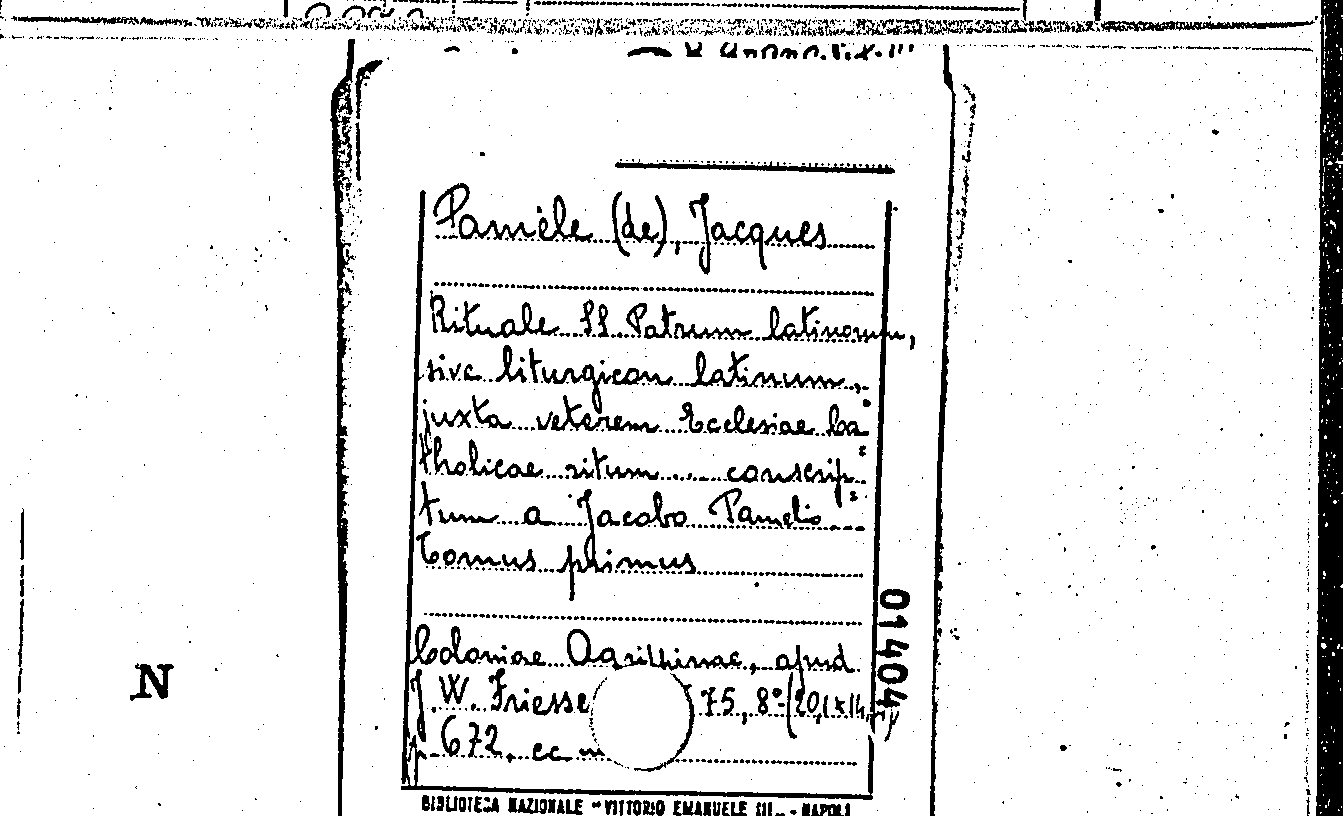 Pamèle (de), Jacques
Rituale SS Patrum latinorum,
sive liturgicon latinum,
juxta veterem Ecclesiae Ca=
tholicae ritum ... conscrip=
tum a Jacobo Pamelio...
Tomus primus
Coloniae Agrippinae, apud
J. W. Friesse 75, 8°-(20,1x14,
p. 672. cc
01404
N
BIBLIOTECA NAZIONALE "VITTORIO EMANUELE III" - NAPOLI